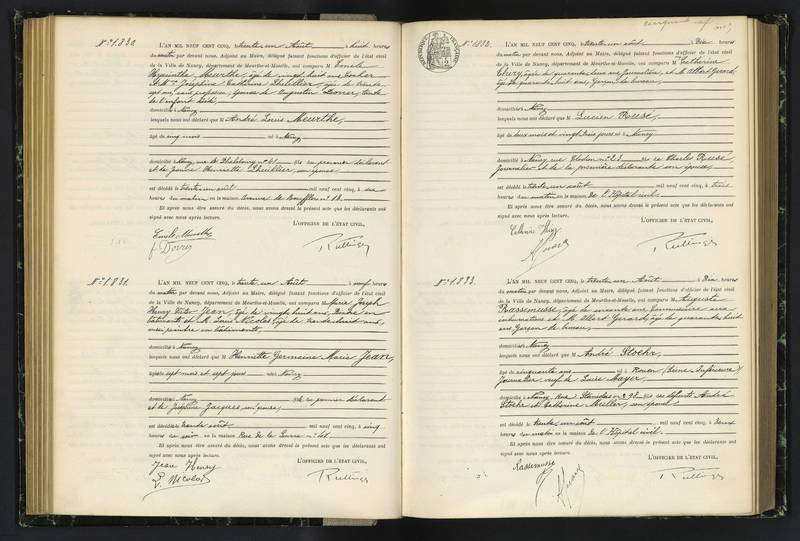 N° 1.830.
L'AN MIL NEUF CENT CINQ, le trente un Août à huit heures
du matin par devant nous, Adjoint au Maire, délégué faisant fonctions d'officier de l'état civil
de la Ville de Nancy, département de Meurthe-et-Moselle, ont comparu M Emile
Hyacinthe Meurthe, âgé de vingt huit ans
Joséphine Catherine Lhuillier, âgée de trente
ans, sans profession, épouse de Augustin Dorner, tante
de l'enfant
domiciliés à Nancy
lesquels nous ont déclaré que M André Louis Meurthe,
âgé de cinq mois né à Nancy
domicilié à Nancy, rue de Phalsbourg n° 41 fils du premier déclarant
et de Jeanne Henriette Lhuillier, son épouse
est décédé le trente un août mil neuf cent cinq, à six
heures du matin en la maison avenue de Boufflers n° 18
Et après nous être assuré du décès, nous avons dressé le présent acte que les déclarants ont
signé avec nous après lecture.
L'OFFICIER DE L'ÉTAT CIVIL,
Emile Meurthe
N° 1.831.
L'AN MIL NEUF CENT CINQ, le trente un Août à neuf heures
du matin par devant nous, Adjoint au Maire, délégué faisant fonctions d'officier de l'état civil
de la Ville de Nancy, département de Meurthe-et-Moselle, ont comparu M Marie Joseph
Henry Victor Jean, âgé de vingt huit ans, peintre en
bâtiments et M. Louis Nicolas, âgé de trente huit ans,
aussi peintre en bâtiments,
domiciliés à Nancy
lesquels nous ont déclaré que M Henriette Germaine Marie Jean,
âgée de sept mois et sept jours née à Nancy
domiciliée à Nancy fille du premier déclarant
et de Joséphine Jacques, son épouse,
est décédée le trente août mil neuf cent cinq, à cinq
heures du soir en la maison Rue de la
Et après nous être assuré du décès, nous avons dressé le présent acte que les déclarants ont
signé avec nous après lecture.
L'OFFICIER DE L'ÉTAT CIVIL,
Jean Henry
L. Nicolas
N° 1832.
L'AN MIL NEUF CENT CINQ, le trente un août à Dix heures
du matin par devant nous, Adjoint au Maire, délégué faisant fonctions d'officier de l'état civil
de la Ville de Nancy, département de Meurthe-et-Moselle, ont comparu M Catherine
âgée de quarante deux ans, journalière, et M. Albert Gerard,
âgé de quarante huit ans, Garçon de bureau,
domiciliés à Nancy
lesquels nous ont déclaré que M Lucien
âgé de deux mois et vingt trois jours né à Nancy
domicilié à Nancy, rue Clodion n° 23 fils de Charles
journalier et de la première déclarante son épouse,
est décédé le trente un août mil neuf cent cinq, à trois
heures du matin en la maison de l'Hôpital civil
Et après nous être assuré du décès, nous avons dressé le présent acte que les déclarants ont
signé avec nous après lecture.
L'OFFICIER DE L'ÉTAT CIVIL,
N° 1.833.
L'AN MIL NEUF CENT CINQ, le trente un Août à Dix heures
du matin par devant nous, Adjoint au Maire, délégué faisant fonctions d'officier de l'état civil
de la Ville de Nancy, département de Meurthe-et-Moselle, ont comparu M Auguste
Rassemusse, âgé de soixante ans, Commissaire aux
inhumations et M. Albert Gerard, âgé de quarante huit
ans Garçon de bureau,
domiciliés à Nancy
lesquels nous ont déclaré que M André Stoehr,
âgé de cinquante ans né à Rouen (Seine Inférieure)
journalier, veuf de Luise Mayer,
domicilié à Nancy, Rue Stanislas fils des défunts André
Stoehr et Catherine Muller, son épouse
est décédé le trente un août mil neuf cent cinq, à deux
heures du matin en la maison de l'Hôpital civil.
Et après nous être assuré du décès, nous avons dressé le présent acte que les déclarants ont
signé avec nous après lecture.
L'OFFICIER DE L'ÉTAT CIVIL,
Rassemusse